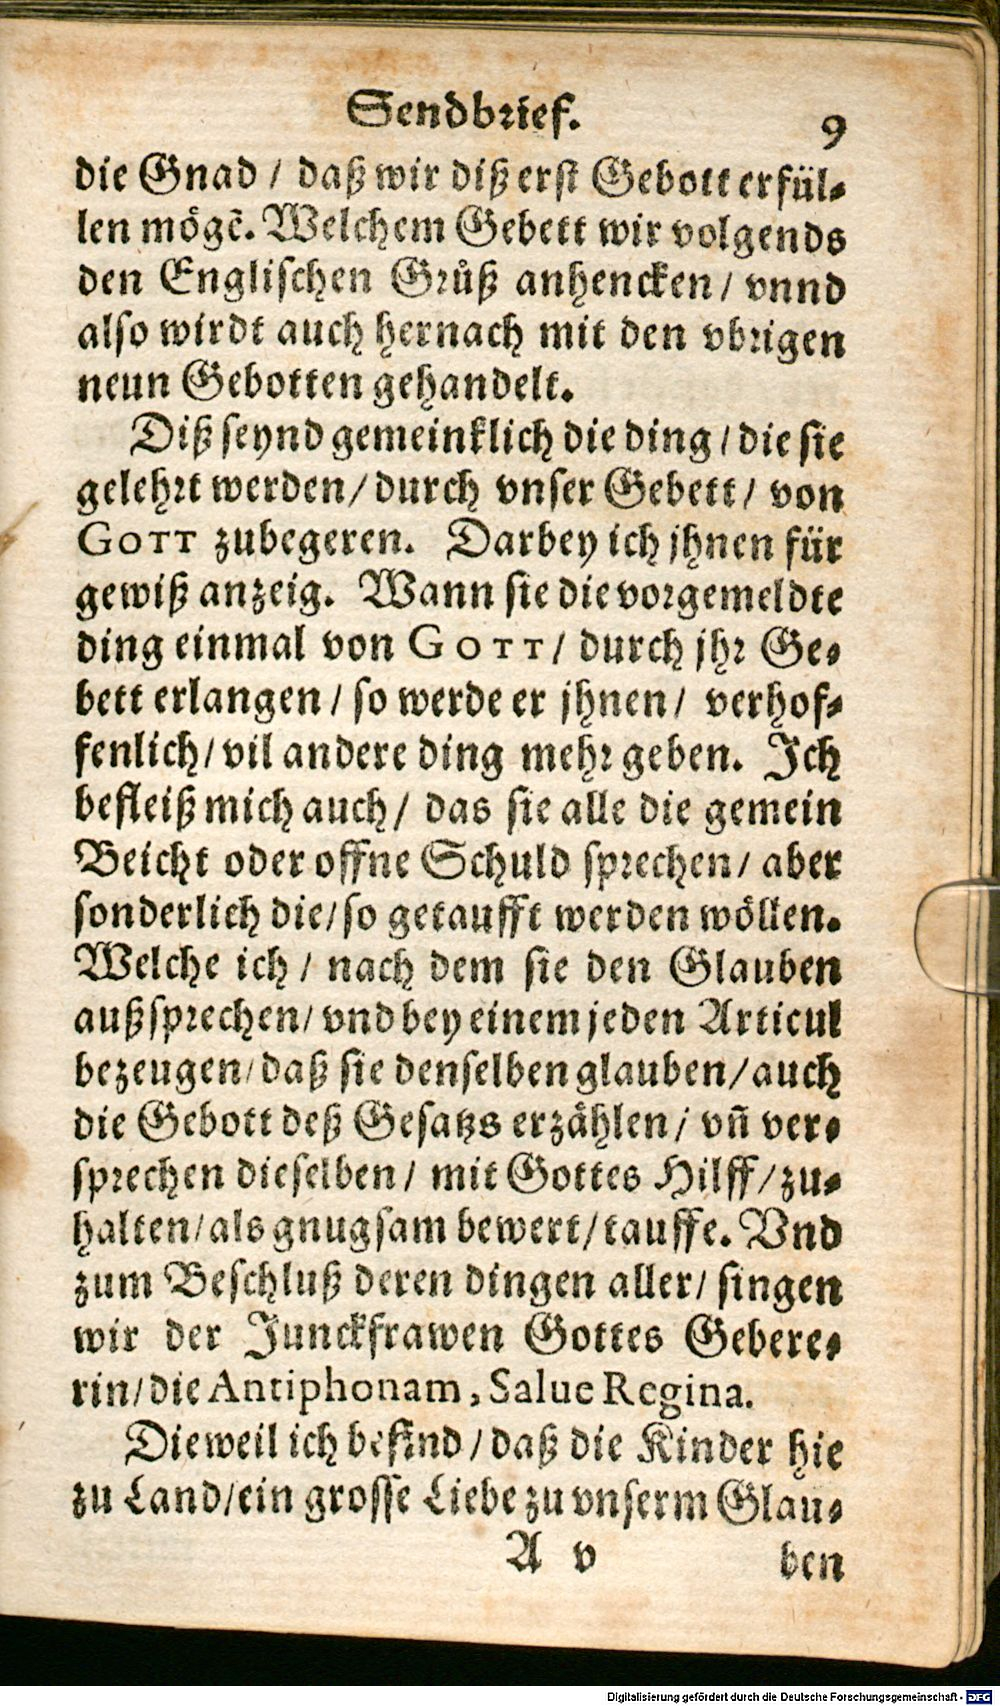 Sendbrief. 9
die Gnad / daß wir diß erst Gebott erfül⸗
len mögẽ. Welchem Gebett wir volgends
den Englischen Gruͤß anhencken / vnnd
also wirdt auch hernach mit den vbrigen
neun Gebotten gehandelt.
Diß seynd gemeinklich die ding / die sie
gelehrt werden / durch vnser Gebett / von
GOTT zubegeren. Darbey ich jhnen für
gewiß anzeig. Wann sie die vorgemeldte
ding einmal von GOTT / durch jhr Ge⸗
bett erlangen / so werde er jhnen / verhof⸗
fenlich / vil andere ding mehr geben. Ich
befleiß mich auch / das sie alle die gemein
Beicht oder offne Schuld sprechen / aber
sonderlich die / so getaufft werden wöllen.
Welche ich / nach dem sie den Glauben
außsprechen / vnd bey einem jeden Articul
bezeugen / daß sie denselben glauben / auch
die Gebott deß Gesatzs erzählen / vñ ver⸗
sprechen dieselben / mit Gottes Hilff / zu⸗
halten / als gnugsam bewert / tauffe. Vnd
zum Beschluß deren dingen aller / singen
wir der Junckfrawen Gottes Gebere⸗
rin / die Antiphonam, Salue Regina.
Dieweil ich befind / daß die Kinder hie
zu Land / ein grosse Liebe zu vnserm Glau⸗
A v ben
Digitalisierung gefördert durch die Deutsche Forschungsgemeinschaft - DFG